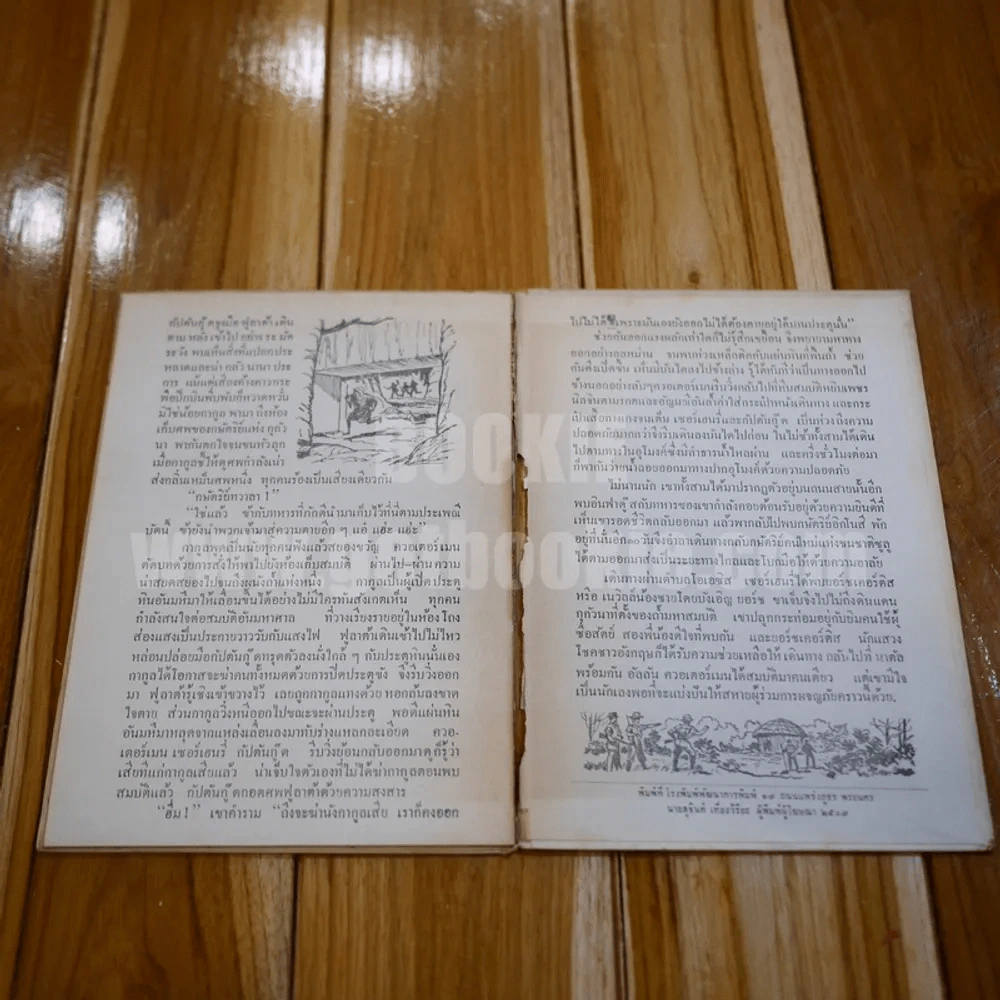 กัปตันกู๊ดจูงมือ ฟูลาต้าเดิน
ตาม หลัง เข้าไป อย่าง ระ มัด
ระ วัง พบเห็นสิ่งที่แปลกประ
หลาดและน่า กลัว นานา ประ
การ แม้แต่เสียงค้างคาวกระ
พือปีกบินพึ่บพั่บก็หวาดหวั่น
มิใช่น้อยกากูล พามา ถึงห้อง
เก็บศพของกษัตริย์แห่ง กูกัว
นา พากันตกใจจนขนหัวลุก
เมื่อกากูลชี้ให้ดูศพกำลังเน่า
ส่งกลิ่นเหม็นศพหนึ่ง ทุกคนร้องเป็นเสียงเดียวกัน
"กษัตริย์ทวาลา !"
"ใช่แล้ว ข้ากับทหารที่ภักดีนำมาเก็บไว้ที่นี่ตามประเพณี
บัดนี้ ข้ายังนำพวกเจ้ามาสู่ความตายอีก ๆ แฮ่ แฮะ แฮ่ะ"
กากูลพูดเป็นนัยทุกคนฟังแล้วสยองขวัญ ควอเตอร์เมน
ตัดบทด้วยการสั่งให้พาไปยังห้องเก็บสมบัติ ผ่านไป-ผ่านความ
น่าสยดสยองไปจนถึงผนังถ้ำแห่งหนึ่ง กากูลเป็นผู้เปิดประตู
หินอันมหึมาให้เลื่อนขึ้นได้อย่างไม่มีใครทันสังเกตเห็น ทุกคน
กำลังสนใจต่อสมบัติอันมหาศาล ที่วางเรียงรายอยู่ในห้องโถง
ส่องแสงเป็นประกายวาววับกับแสงไฟ ฟูลาต้าเดินเข้าไปไม่ไหว
หล่อนปล่อยมือกัปตันกู๊ดทรุดตัวลงนั่งใกล้ ๆ กับประตูหินนั่นเอง
กากูลได้โอกาสจะฆ่าคนทั้งหมดด้วยการปิดประตูขัง จึงรีบวิ่งออก
มา ฟูลาต้ารู้เชิงเข้าขวางไว้ เลยถูกกากูลแทงด้วย หอกลับลงขาด
ใจตาย ส่วนกากูลวิ่งหนีออกไปขณะจะผ่านประตู พอดีแผ่นหิน
อันมหึมาหลุดจากแหล่งเลื่อนลงมาทับร่างแหลกละเอียด ควอ-
เตอร์เมน เซอร์เฮนรี่ กัปตันกู๊ด รีบวิ่งย้อนกลับออกมาดูก็รู้ว่า
เสียทีแก่กากูลเสียแล้ว น่าเจ็บใจตัวเองที่ไม่ได้ฆ่ากากูลตอนพบ
สมบัติแล้ว กัปตันกู๊ดกอดศพฟูลาต้าด้วยความสงสาร
"ฮึ่ม !" เขาคำราม "ถึงจะฆ่านังกากูลเสีย เราก็คงออก
ไปไม่ได้ เพราะมันเองยังออกไม่ได้ต้องตายอยู่ใต้บานประตูนั่น"
ช่วยกันออกแรงผลักเท่าใดก็ไม่รู้สึกเขยื้อน จึงพยายามหาทาง
ออกอย่างลหม่าน จนพบห่วงเหล็กติดกับแผ่นหินที่พื้นถ้ำ ช่วย
กันดึงเปิดขึ้น เห็นมีบันไดลงไปข้างล่าง รู้ได้ทันทีว่าเป็นทางออกไป
ข้างนอกอย่างลับๆควอเตอร์เมนรีบวิ่งกลับไปที่หีบสมบัติหยิบเพชร
นิลจินดามรกตและอัญมณีอันล้ำค่าใส่กระเป๋าหนังเดินทาง และกระ
เป๋าเสื้อกางเกงจนเต็ม เซอร์เฮนรี่และกัปตันกู๊ด เป็นห่วงถึงความ
ปลอดภัยมากกว่าจึงรีบเดินลงบันไดไปก่อน ในไม่ช้าทั้งสามได้เดิน
ไปตามทางในอุโมงค์ซึ่งมีลำธารน้ำไหลผ่าน และครึ่งชั่วโมงต่อมา
ก็พากันว่ายน้ำลอยออกมาทางปากอุโมงค์ด้วยความปลอดภัย
ไม่นานนัก เขาทั้งสามได้มาปรากฏตัวอยู่บนถนนสายนั้นอีก
พบอินฟาดู๊สกับทหารของเขากำลังคอยต้อนรับอยู่ด้วยความยินดีที่
เห็นเขารอดชีวิตกลับออกมา แล้วพากลับไปพบกษัตริย์อิกโนสี่ พัก
อยู่ที่นั่นอีก๑๐วันจึงอำลาเดินทางกลับกษัตริย์คนใหม่แห่งชนชาติซูลู
ได้ตามออกมาส่งเป็นระยะทางไกลและโบกมือให้ด้วยความอาลัย
เดินทางผ่านตำบลโอเอซิส เซอร์เฮนรี่ได้พบยอร์ชเคอร์ติส
หรือ เนวิลล์น้องชายโดยบังเอิญ ยอร์ช ขาเจ็บจึงไปไม่ถึงดินแดน
กูกัวนาที่ตั้งของถ้ำมหาสมบัติ เขาปลูกกระท่อมอยู่กับยิมคนใช้ผู้
ซื่อสัตย์ สองพี่น้องดีใจที่พบกัน และยอร์ชเคอร์ติส นักแสวง
โชคชาวอังกฤษก็ได้รับความช่วยเหลือให้ เดินทาง กลับไปที่ นาตัล
พร้อมกัน อัลลัน ควอเตอร์เมนได้สมบัติมาคนเดียว แต่เขามีใจ
เป็นนักเลงพอที่จะแบ่งปันให้สหายผู้ร่วมการผจญภัยคราวนี้ด้วย.
พิมพ์ที่ โรงพิมพ์พัฒนาการพิมพ์ ๑๗ ถนนแพร่งภูธร พระนคร